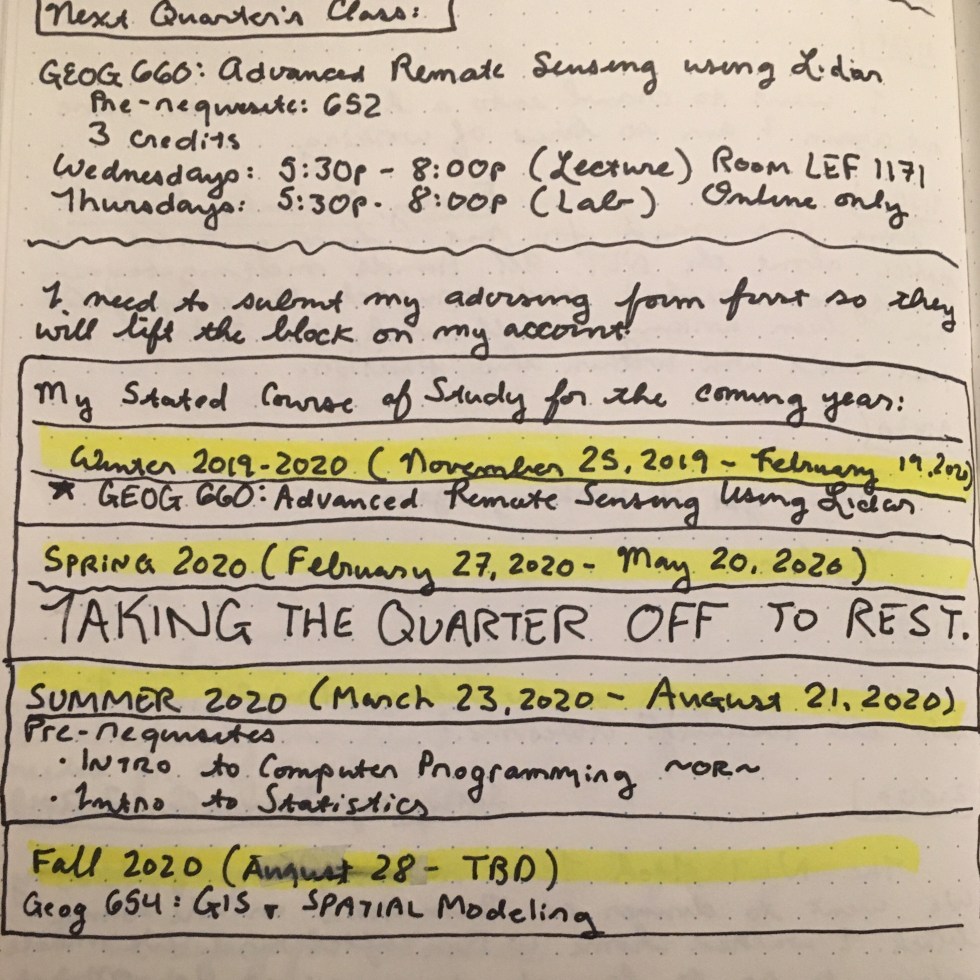 Next Quarter's Class:
GEOG 660: Advanced Remote Sensing using Lidar
Pre-requisite: 652
3 credits
Wednesdays: 5:30p - 8:00p (Lecture) Room LEF 1171
Thursdays: 5:30p - 8:00p (Lab) Online only
I need to submit my advising form first so they
will lift the block on my account!
My Stated Course of Study for the coming year:
Winter 2019-2020 (November 25, 2019 - February 19, 2020)
* GEOG 660: Advanced Remote Sensing Using Lidar
SPRING 2020 (February 27, 2020 - May 20, 2020)
TAKING THE QUARTER OFF TO REST.
SUMMER 2020 (March 23, 2020 - August 21, 2020)
Pre-requisites
• INTRO to Computer Programming ~OR~
• Intro to Statistics
Fall 2020 (August 28 - TBD)
Geog 654: GIS & SPATIAL Modeling